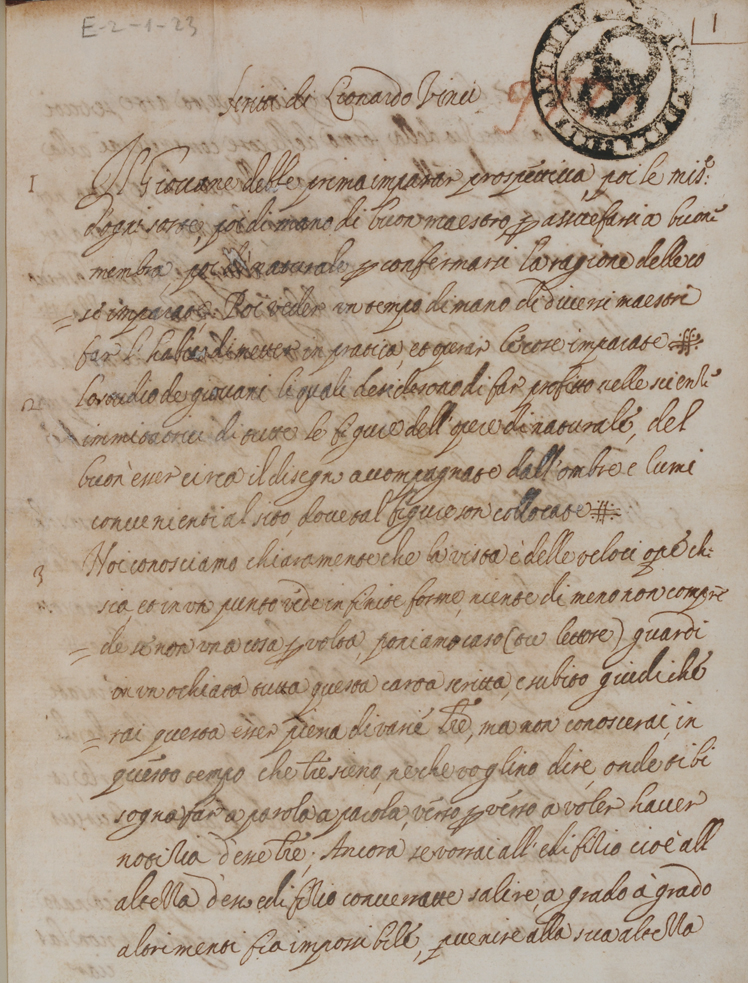 E-2-1-23
1
Scritti di Lionardo Vinci
1 Il Giovane debbe prima imparar prospettiva, poi le mis:
d'ogni sorte, poi di mano di buon maestro p assuefarsi a buone
membra, poi dal naturale p confermarsi la ragione delle co
= se imparate. Poi veder un tempo di mano di diversi maestri
far l'habito di metter in pratica, et operar le cose imparate
2 Lo studio de giovani li quali desiderano di far profitto nelle scientie
immitatrici di tutte le figure dell'opere di naturale, del
buon'esser circa il disegno accompagnate dall'ombre e lumi
convenienti al sito, dove tal figure son collocate
3 Noi conosciamo chiaramente che la vista è delle veloci opè ch:
sia, et in un punto vede infinite forme, niente di meno non compre
= de se non una cosa p volta, poniamo caso (tu lettore) guardi
in un ochiata tutta questa carta scritta, e subito giudiche
= rai questa esser piena di varie lre, ma non conoscerai, in
questo tempo che lre sieno, ne che voglino dire, onde ti bi
sogna far a parola a parola, verso p verso a voler haver
notitia d'esse lre; Ancora se vorrai all'edifitio cioè all
altezza d'esso edifitio converratte salire, a grado à grado
altrimenti fia impossibile, pvenire alla sua altezza